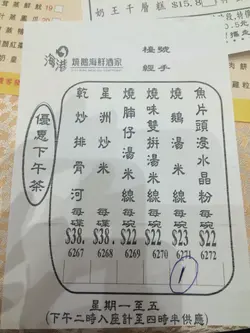 奶王千層糕 $15.8
海港
燒鵝海鮮酒家
檯號
經手
優惠下午茶
魚片頭浸水晶粉 每碗 $22 6272
燒鵝湯米線 每碗 $23 6271
燒味雙拼湯米線 每碗 $22 6270
燒腩仔湯米線 每碗 $22 6269
星洲炒米 每碟 $38 6268
乾炒排骨河 每碟 $38 6267
1
星期一至五
(下午二時入座計至四時半供應)